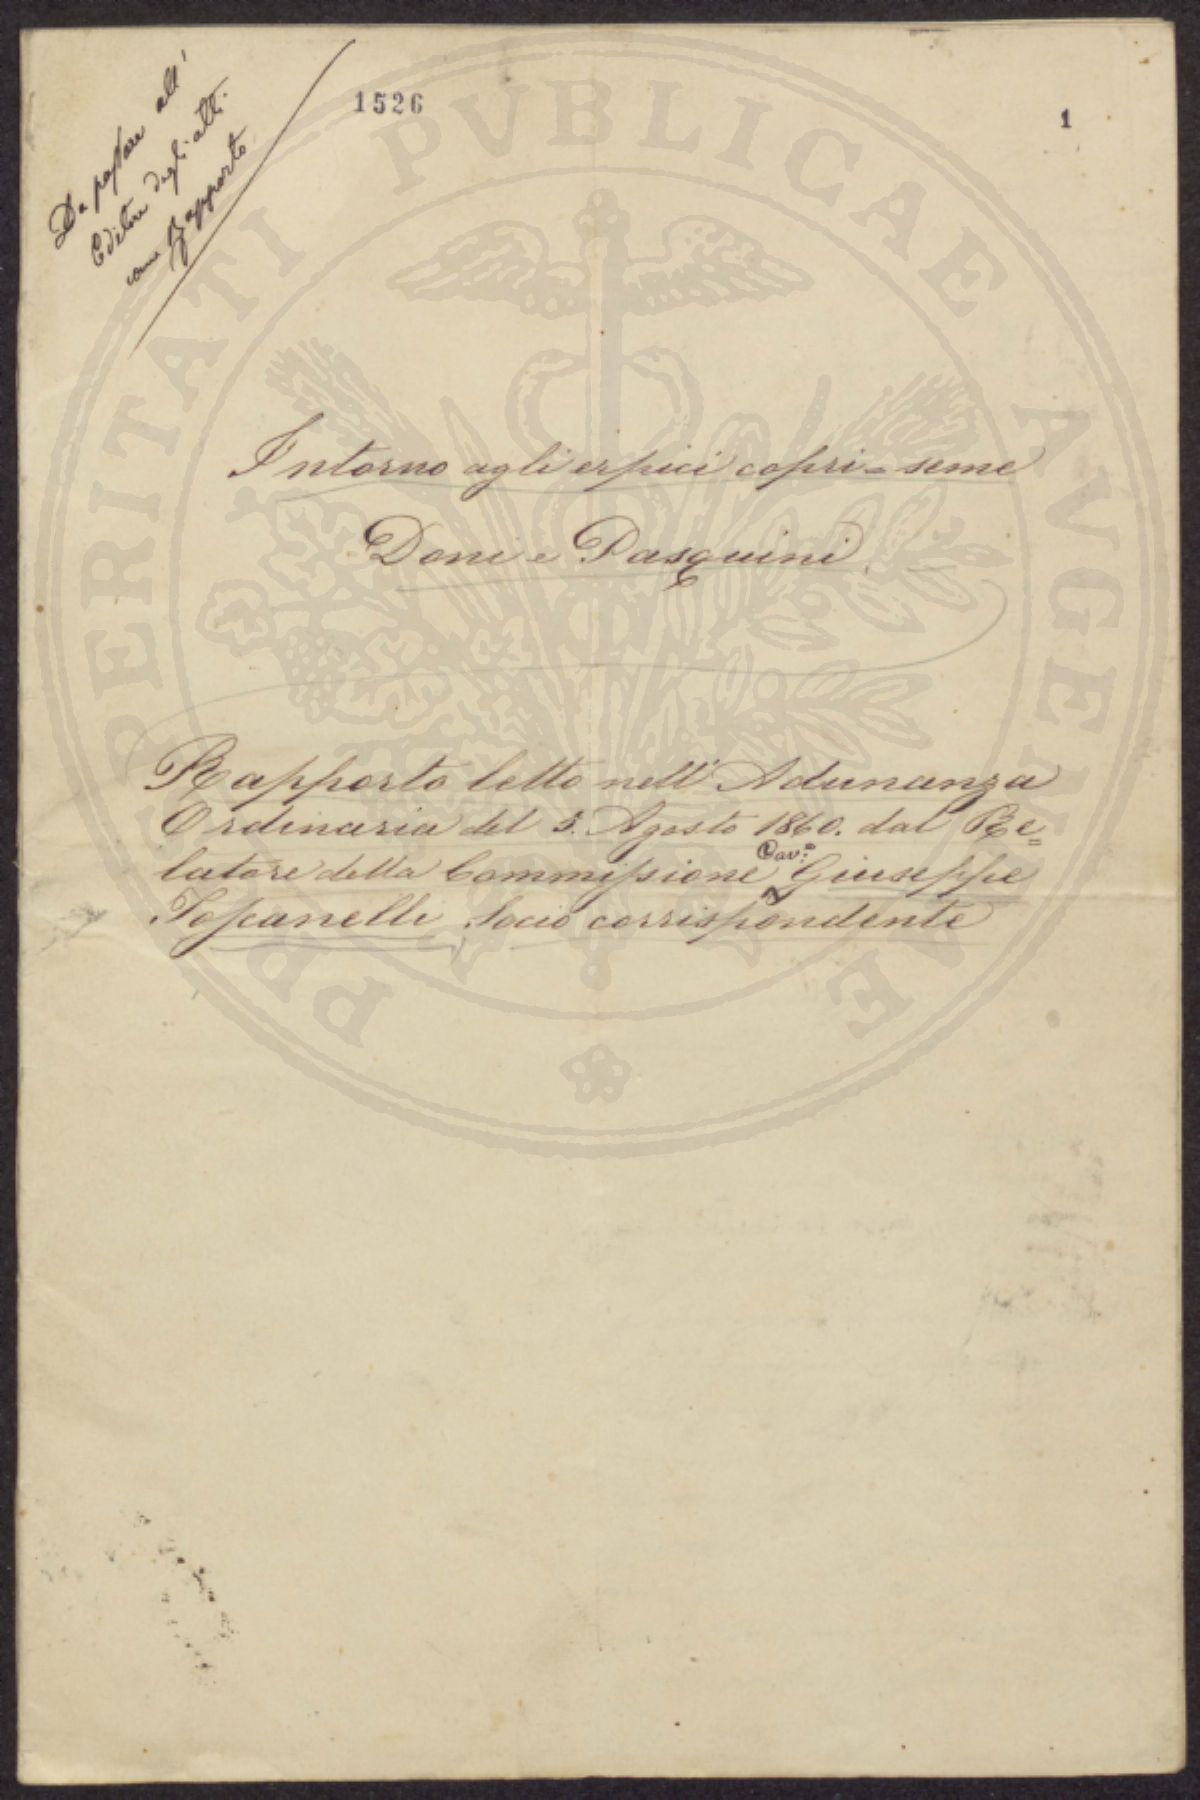 Da passare all'
Editore degli atti
come Rapporto
1526
1
Intorno agli erpici copri=seme
Doni e Pasquini
Rapporto letto nell'Adunanza
Ordinaria del 5. Agosto 1860. dal Re=
latore della Commissione Cav:e Giuseppe
Toscanelli Socio corrispondente
PROSPERITATI PVBLICAE AVGENDAE